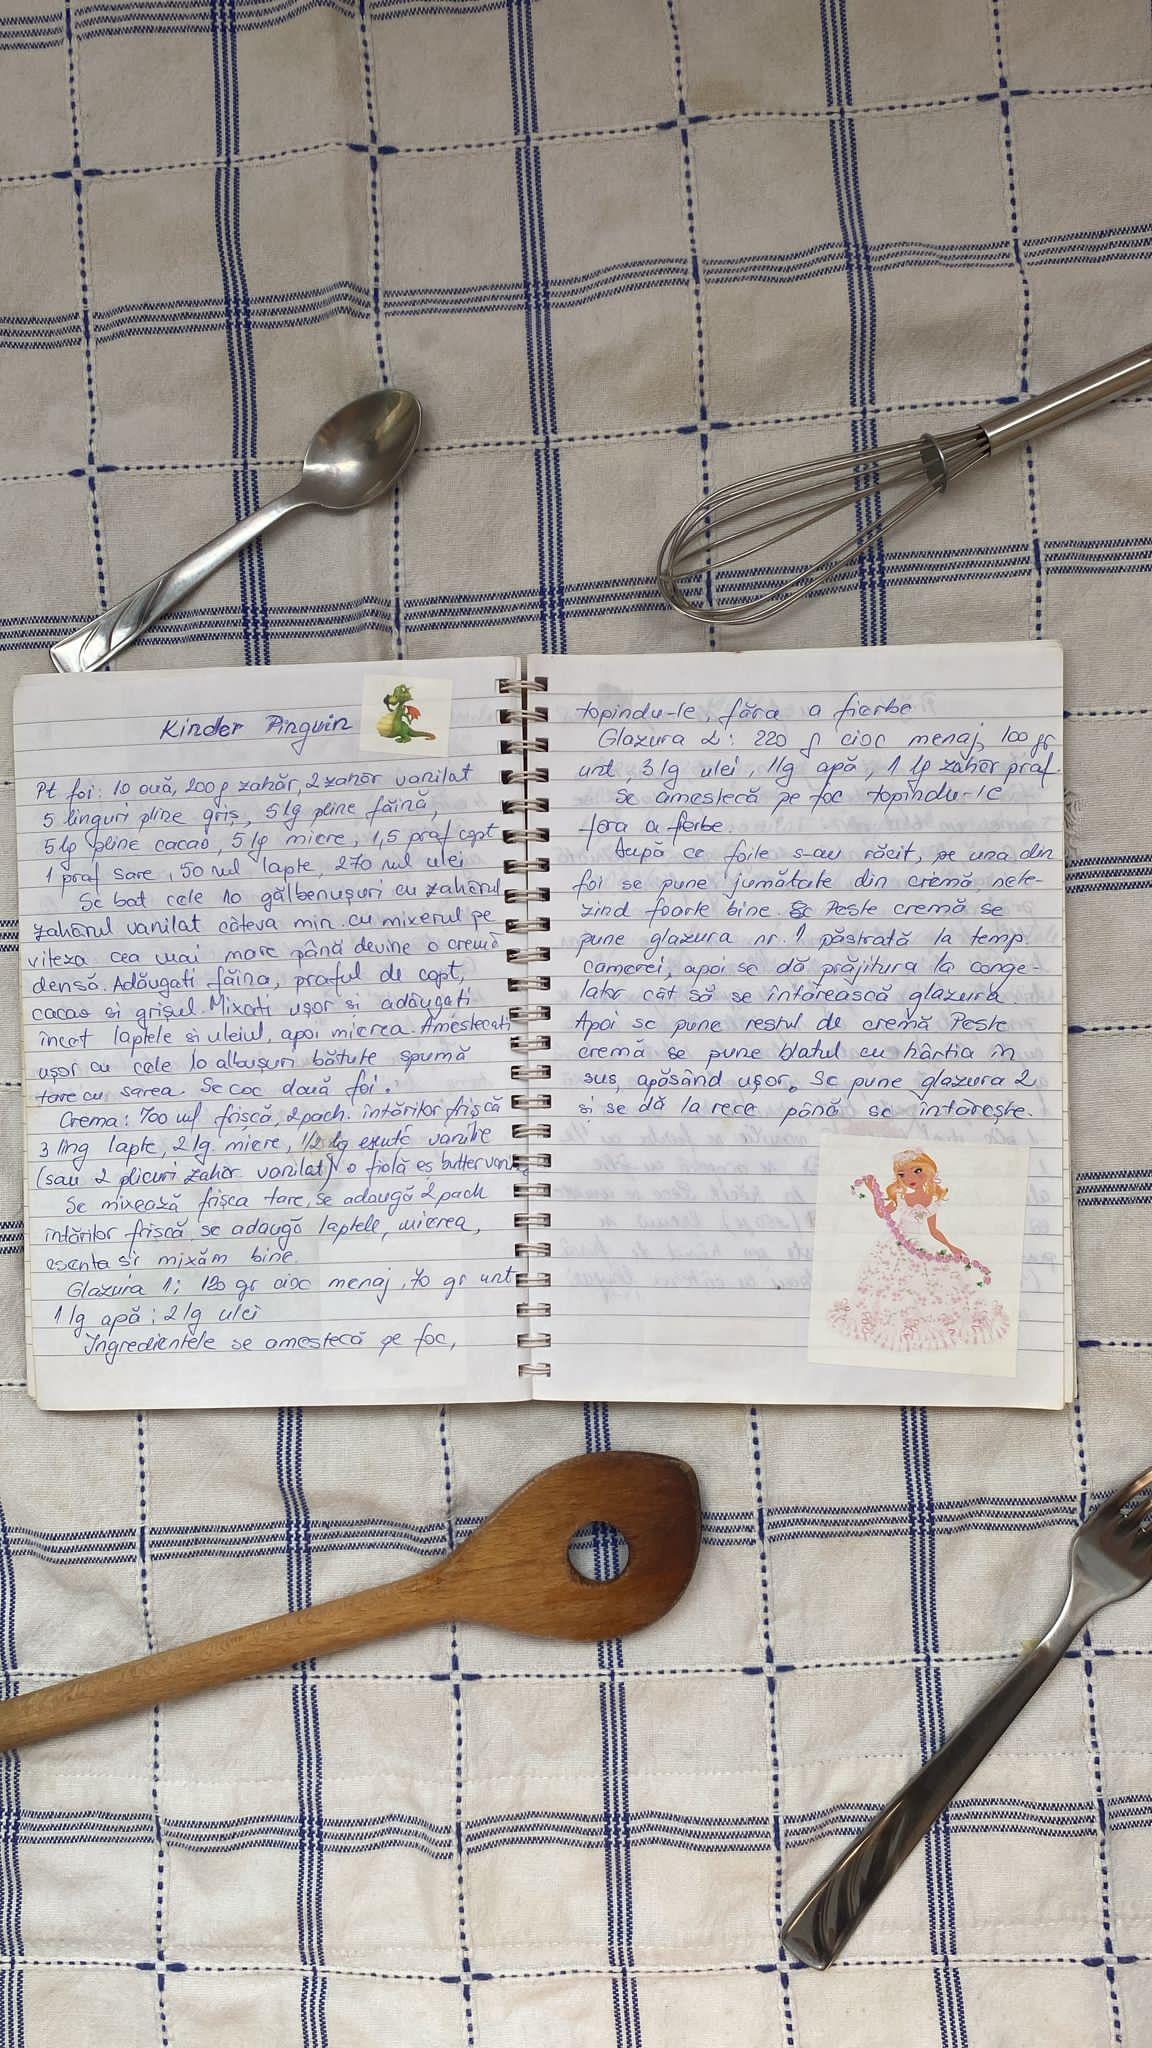 Kinder Pinguin
Pt foi: 10 ouă, 200g zahăr, 2 zahăr vanilat
5 linguri pline griș, 5lg pline făină,
5lg pline cacao, 5lg miere, 1,5 praf copt
1 praf sare, 50 ml lapte, 270 ml ulei
Se bat cele 10 gălbenușuri cu zahărul
zahărul vanilat câteva min. cu mixerul pe
viteza cea mai mare până devine o cremă
densă. Adăugati făina, praful de copt,
cacao si grișul. Mixati ușor si adăugati
încet laptele si uleiul, apoi mierea. Amestecati
ușor cu cele 10 albușuri bătute spumă
tare cu sarea. Se coc două foi.
Crema: 700 ml frișcă, 2 pach. întăritor frișcă
3 ling lapte, 2 lg. miere, 1/2 lg esență vanilie
(sau 2 plicuri zahăr vanilat) o fiolă es butter
Se mixează frișca tare, se adaugă 2 pach
întăritor frișcă, se adaugă laptele, mierea,
esenta si mixăm bine.
Glazura 1: 120 gr cioc menaj, 70 gr unt
1 lg apă; 2 lg ulei
Ingredientele se amestecă pe foc,
topindu-le, făra a fierbe
Glazura 2: 220 g cioc menaj, 100 gr
unt, 3 lg ulei, 1lg apă, 1 lg zăhăr praf.
Se amestecă pe foc topindu-le
fara a fierbe.
După ce foile s-au răcit, pe una din
foi se pune jumătate din cremă, nete-
zind foarte bine. Peste cremă se
pune glazura nr. 1 păstrată la temp.
camerei, apoi se dă prăjitura la conge-
lator cât să se întărească glazura.
Apoi se pune restul de cremă Peste
cremă se pune blatul cu hârtia în
sus, apăsând ușor. Se pune glazura 2
si se dă la rece până se întărește.